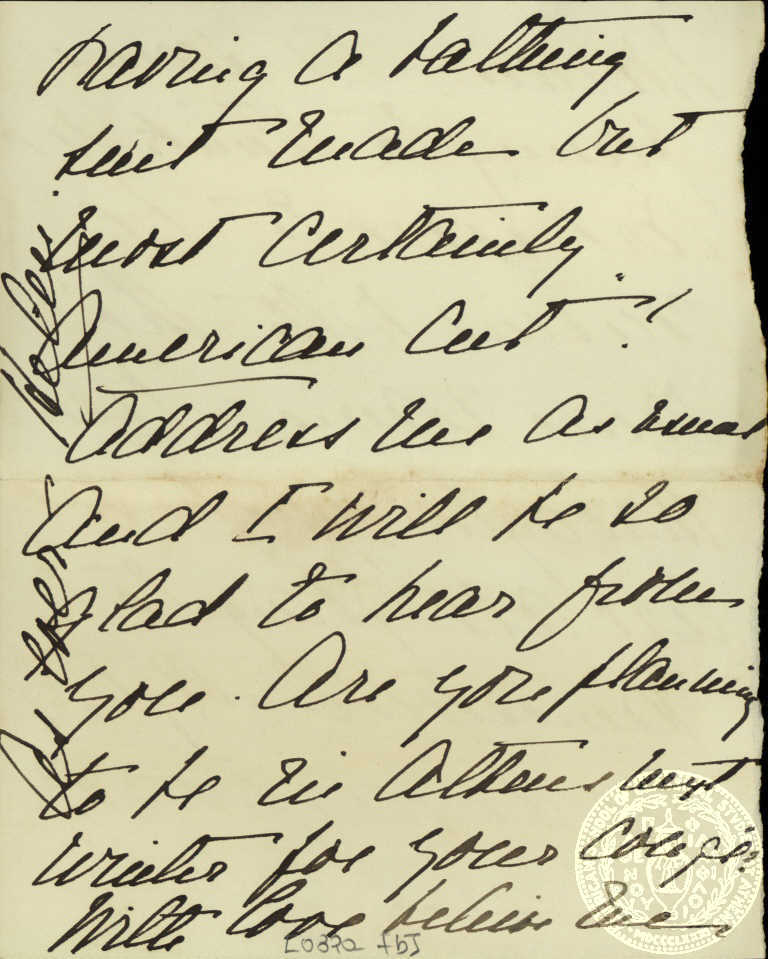 having a bathing
suit made but
most certainly
American cut!
Address me as usual
and I will be so
glad to hear from
you. Are you planning
to be in Athens next
winter for your
With love believe me